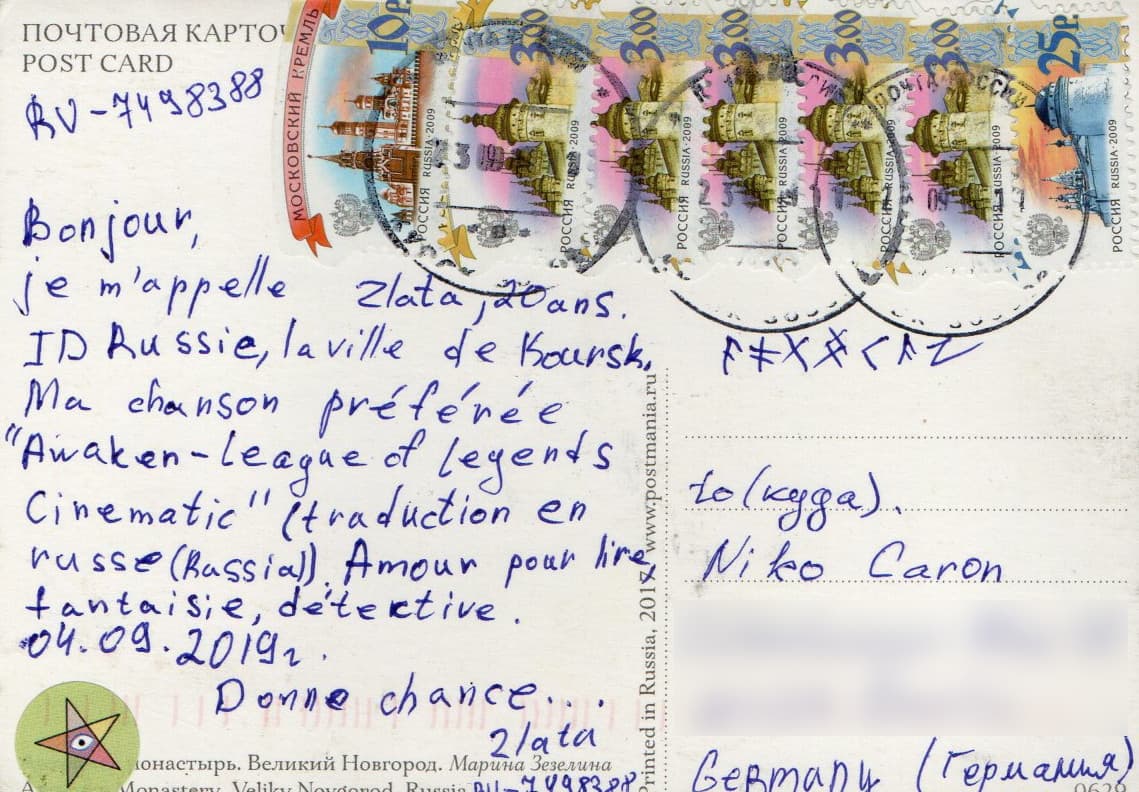 ПОЧТОВАЯ КАРТОЧ
POST CARD
RU-7498388
МОСКОВСКИЙ КРЕМЛЬ
10Р.
РОССИЯ RUSSIA·2009
3.00
РОССИЯ RUSSIA·2009
3.00
РОССИЯ RUSSIA·2009
3.00
РОССИЯ RUSSIA·2009
3.00
РОССИЯ RUSSIA·2009
3.00
РОССИЯ RUSSIA·2009
25Р.
РОССИЯ RUSSIA·2009
Bonjour,
je m'appelle Zlata, 20 ans.
ID Russie, la ville de Koursk.
Ma chanson préférée
"Awaken-League of legends
Cinematic" (traduction en
russe (Russia)). Amour pour lire,
fantaisie, détektive.
04.09.2019г.
Donne chance...
Zlata
to (куда).
Niko Caron
Germany (Германия)
Printed in Russia, 2017, www.postmania.ru
онастырь. Великий Новгород. Марина Зезелина
Monastery. Veliky Novgorod. Russia
RU-7498388
0629